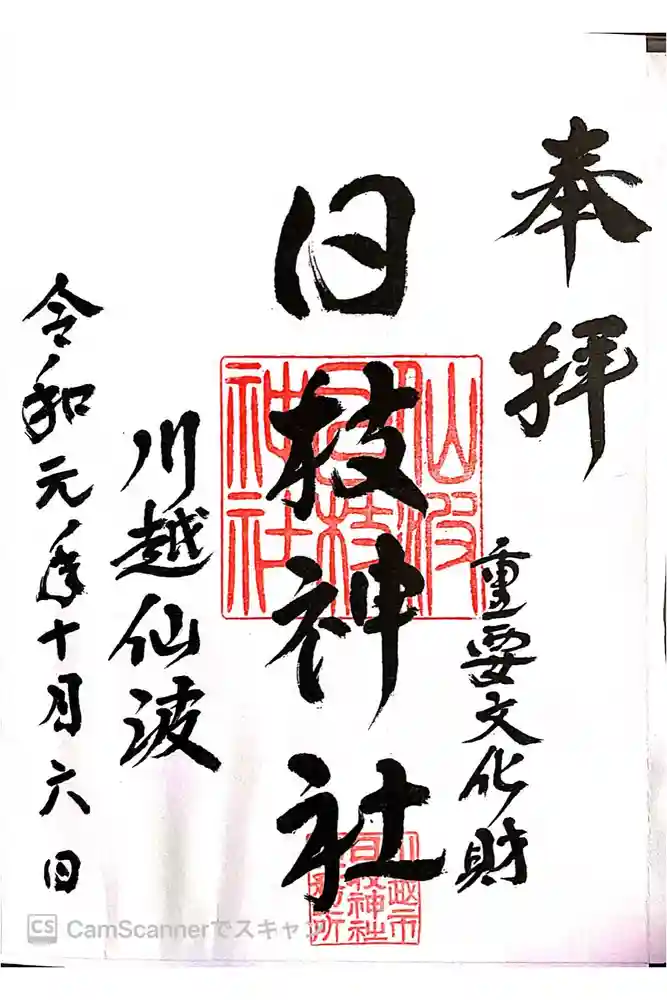 奉拝
重要文化財
日枝神社
川越仙波
令和元年十月六日
仙波
日枝
神社
川越市
日枝神社
社務所
CS CamScannerでスキャン